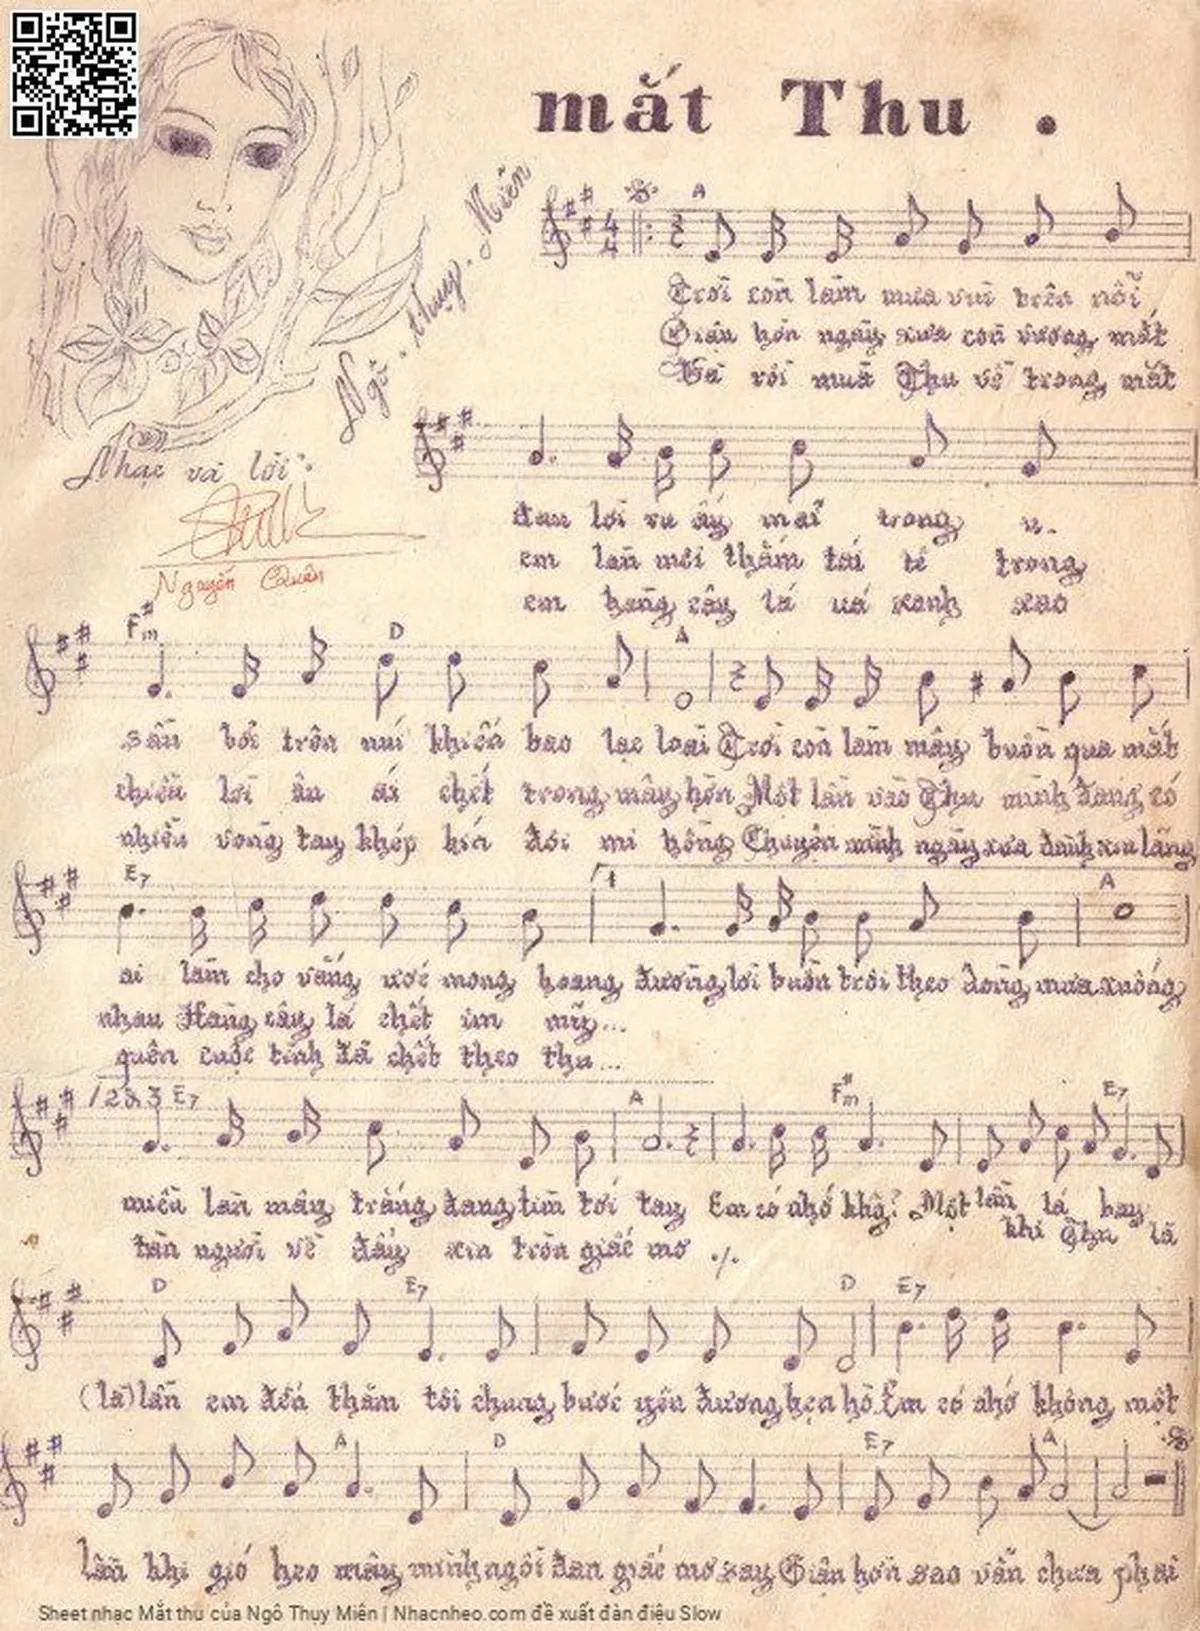 mắt Thu .
Ngô . thụy . Miên
A
Trời còn làm mưa rơi trên nôi
Giận hờn ngày xưa còn vương mắt
Và rồi mùa Thu về trong mắt
Nhạc và lời :
đau lời ru ấy mãi trong u.
em làn môi thắm tái tê trong
em hàng cây lá úa xanh xao
Nguyễn Quân
F#m D A
sầu bởi trên núi khiến bao lạc loài Trời còn làm mây buồn qua mắt
chiều lời ân ái chết trong mây hôn Một lần vào Thu mình đang có
nhiều vòng tay khép kín đôi mi hồng Chuyện mình ngày xưa đành xin lãng
E7 1 A
ai làm cho vắng ước mong hoang đường lời buồn trôi theo dòng mưa xuống
nhau Hàng cây lá chết im ...
quên cuộc tình đã chết theo thu...
/2&3 E7 A F#m E7
miền làn mây trắng đang tìm tới tay Em có nhớ khg? Một lần lá bay
khi Thu lá
tàn người về đấy xin tròn giấc mơ ./.
D E7 D E7
(lá) lần em đến thăm tôi chung bước yêu đương hẹn hò Em có nhớ không một
A D E7 A
lần khi gió heo mây mình ngồi đan giấc mơ say Giận hờn sao vẫn chưa phai
Sheet nhạc Mắt thu của Ngô Thụy Miên | Nhacnheo.com đề xuất đàn điệu Slow